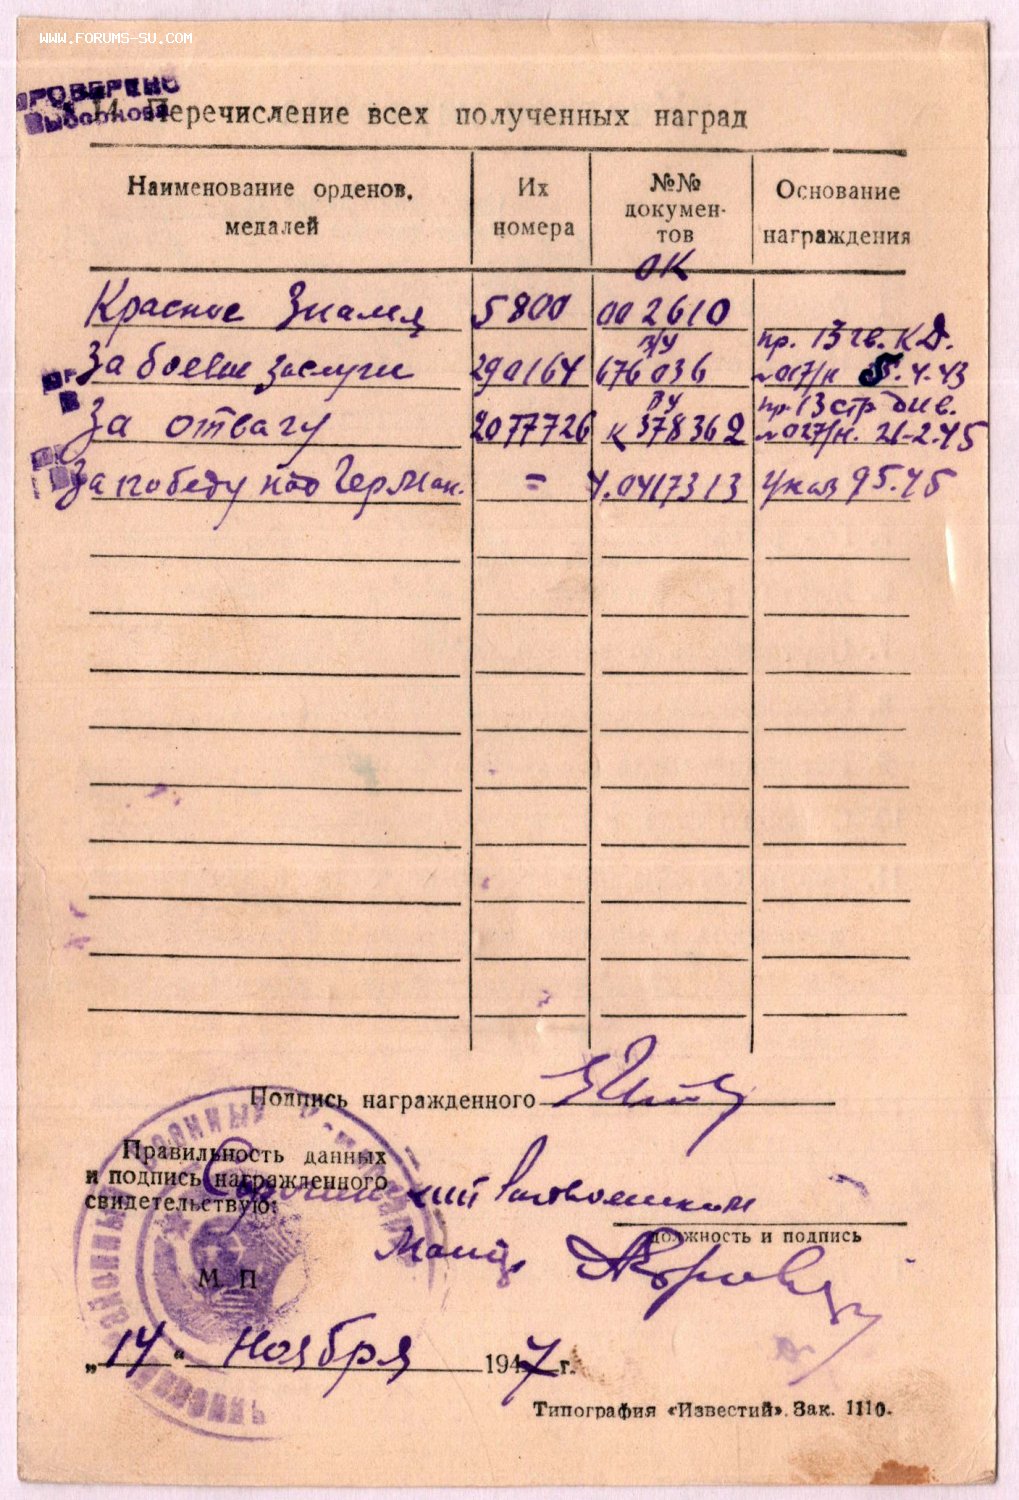 WWW.FORUMS-SU.COM
ПРОВЕРЕНО
14. Перечисление всех полученных наград
Наименование орденов, медалей
Их номера
№№ докумен-тов
Основание награждения
ОК
Красное Знамя 5800 002610
В/У пр. 13 гв. К.Д.
За боевые заслуги 290164 676036 №017/н 5.4.43
ВУ пр 13 стр див.
За отвагу 2077726 К 378362 №027/н. 21-2.45
За победу над Герман. = У.0417313 Указ 9 5.45
Подпись награжденного
Правильность данных
и подпись награжденного
свидетельствую:
Райвоенком
должность и подпись
М. П
„14“ Ноября 1947 г.
Типография «Известий». Зак. 1110.